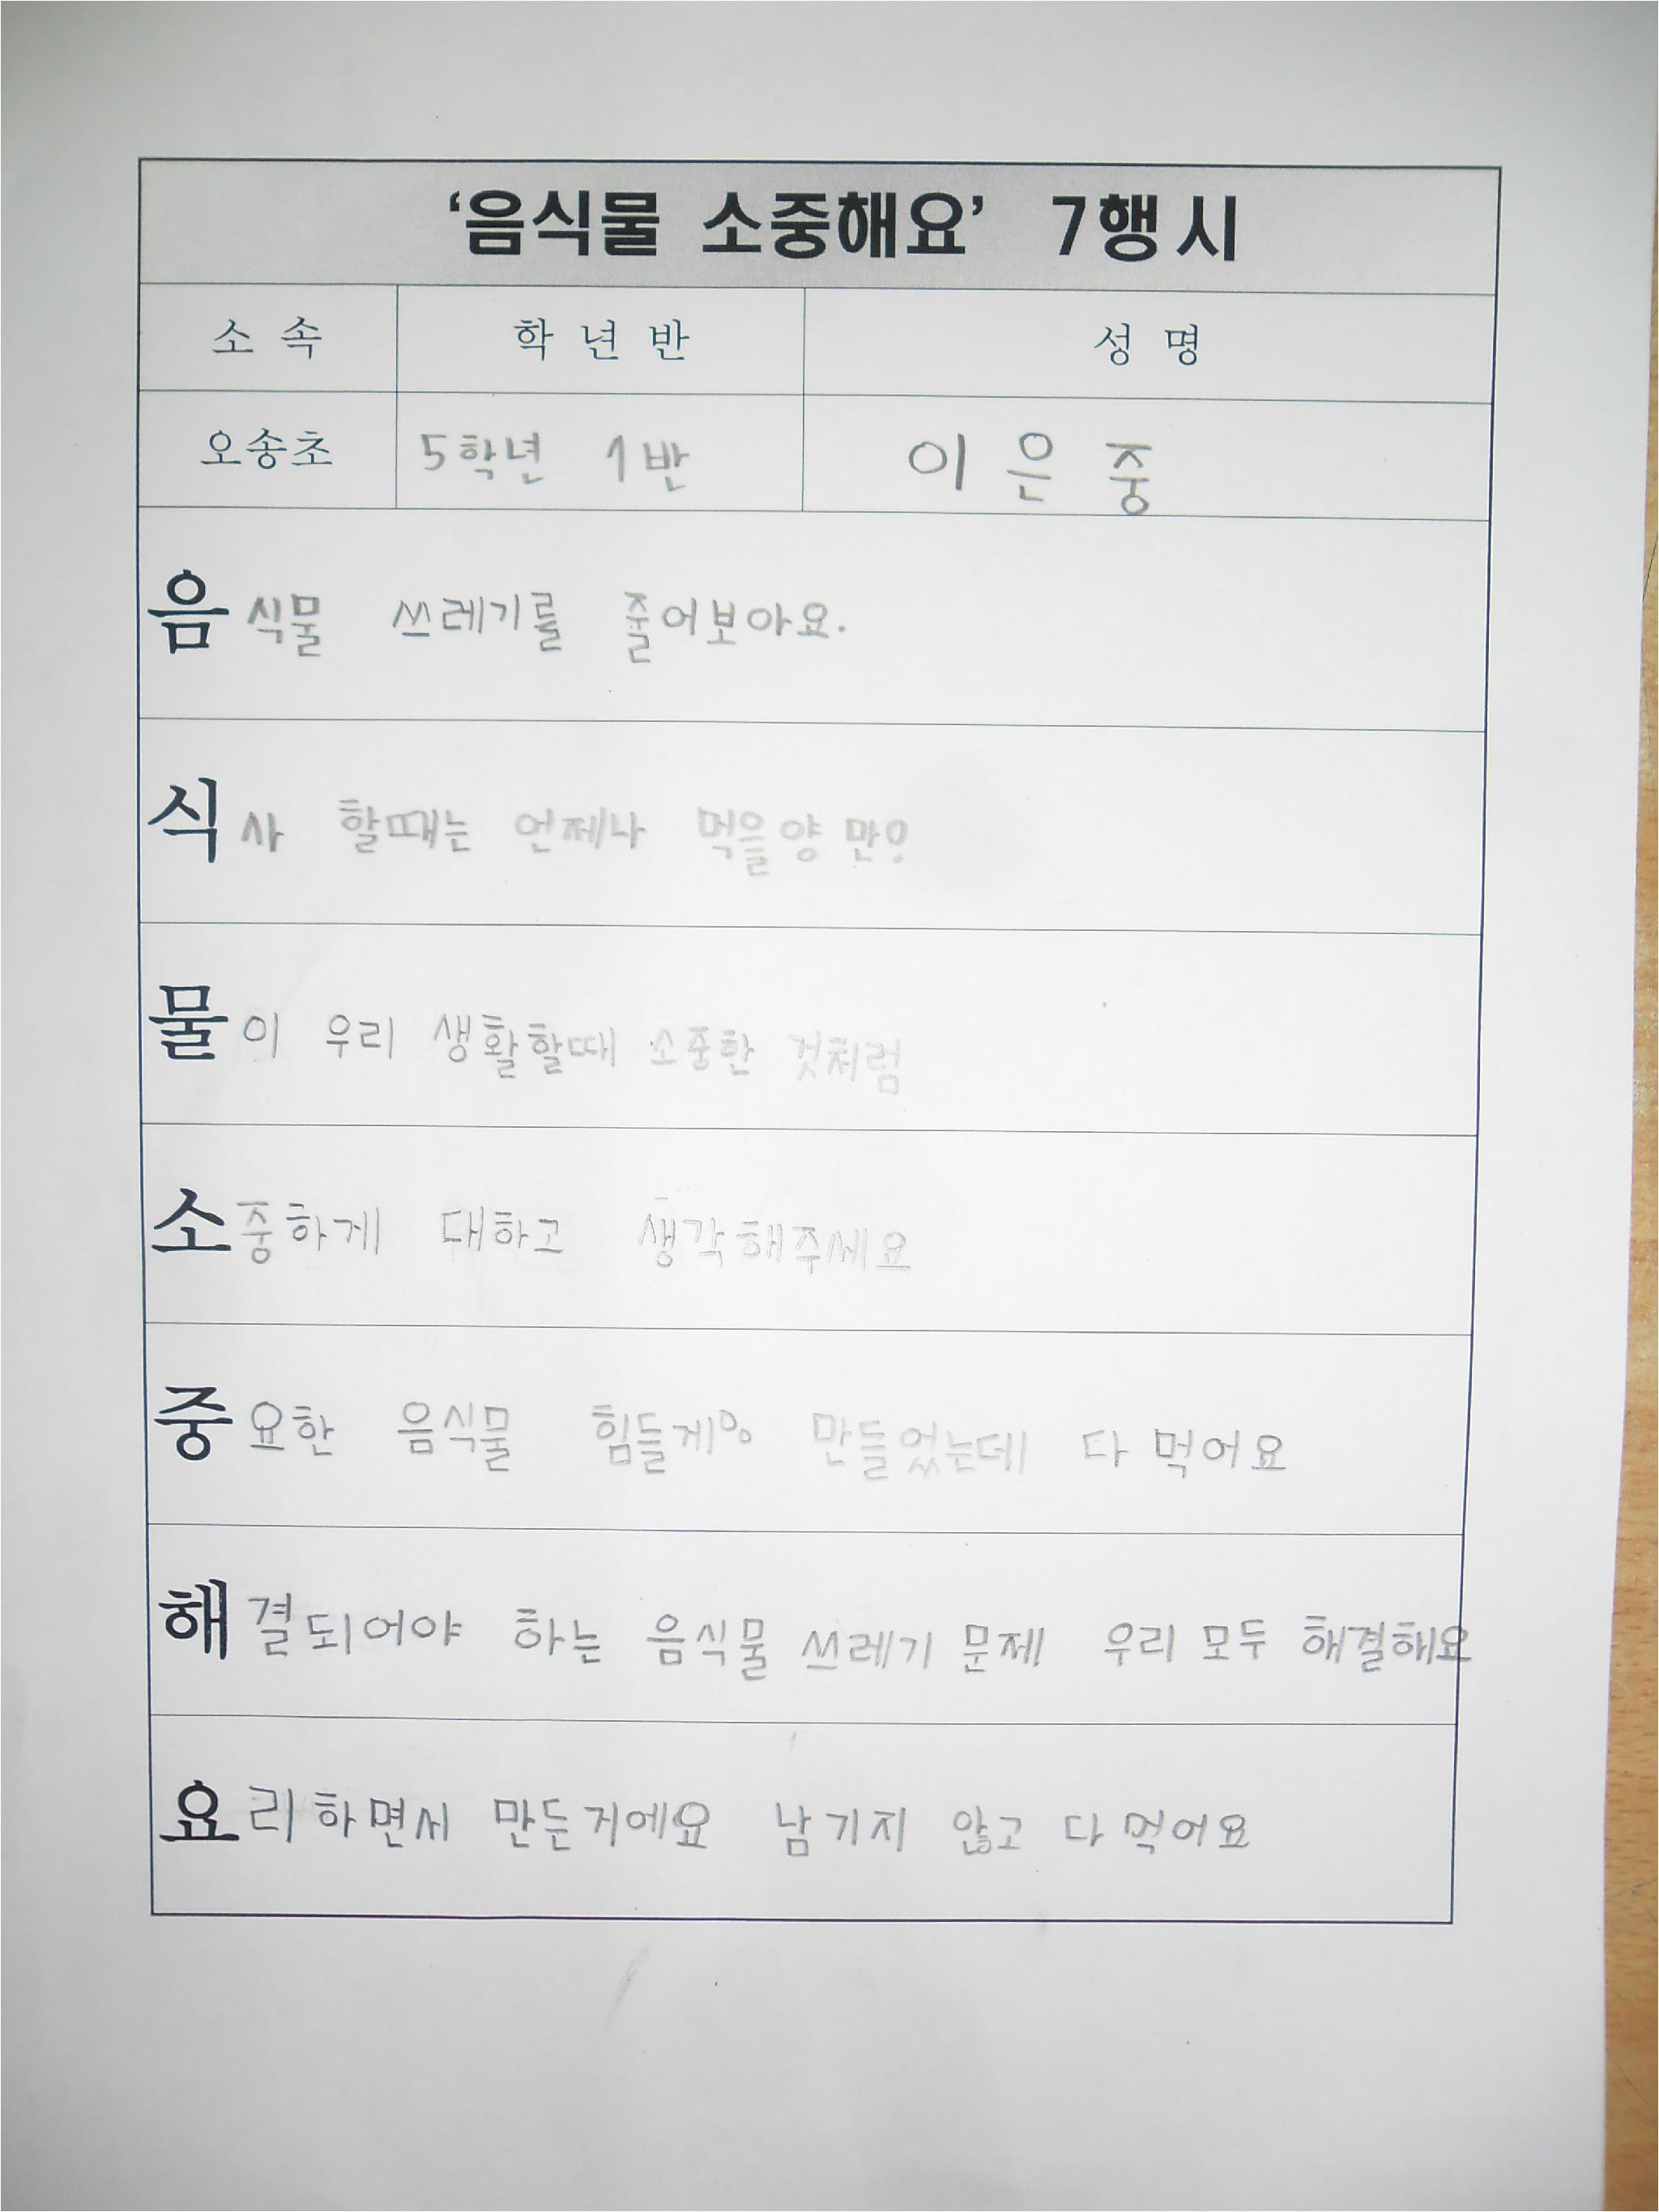 ‘음식물 소중해요’ 7행시
소 속 학 년 반 성 명
오송초 5학년 1반 이 은 중
음식물 쓰레기를 줄어보아요.
식사 할때는 언제나 먹을양 만?
물이 우리 생활할때 소중한 것처럼
소중하게 대하고 생각해주세요
중요한 음식물 힘들게 만들었는데 다 먹어요
해결되어야 하는 음식물 쓰레기 문제 우리 모두 해결해요
요리하면서 만든거에요 남기지 않고 다 먹어요